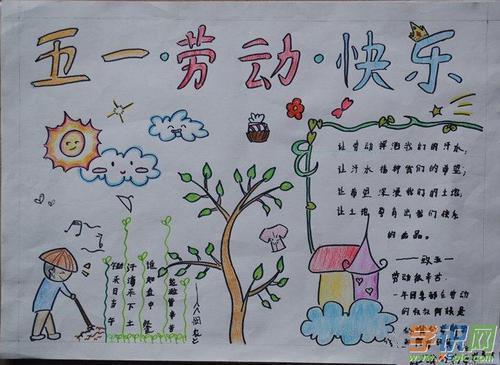 五一·劳动·快乐
让劳动挥洒我们的汗水,
让汗水播种我们的希望;
让希望浸漫我们的土地,
让土地孕育出我们快乐
的
品。
劳动最辛苦。
一年四季都在劳动
的叔叔阿姨是
锄禾日当午
汗滴禾下土
谁知盘中餐
粒粒皆辛苦
学识网